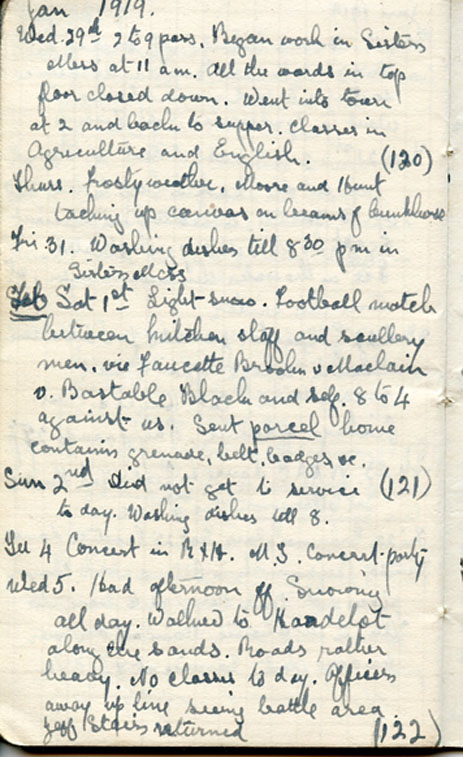 Jan 1919.
Wed. 29th 2 to 9 pass. Began work in Sisters
Mess at 11 am. All the wards in top
floor closed down. Went into town
at 2 and back to supper. Classes in
Agriculture and English. (120)
Thurs. Frosty weather. Moore and Hunt
tacking up canvas on beams of bunkhouse
Fri 31. Washing dishes till 8 30 pm in
Sisters Mess
Feb Sat 1st Light snow. Football match
between kitchen staff and scullery
men. vie Faucette Brookn v Maclain
v. Bastable Black and self. 8 to 4
against us. Sent parcel home
contains grenade, belt, badges, vc.
Sun 2nd Did not get to service (121)
to day. Washing dishes till 8.
Tu 4 Concert in M.S. Concert party
Wed 5. Had afternoon off. Snowing
all day. Walked to Hardelot
along the sands. Roads rather
heavy. No classes to day. Officers
away up line seeing battle area
Jeff Stairs returned (122)